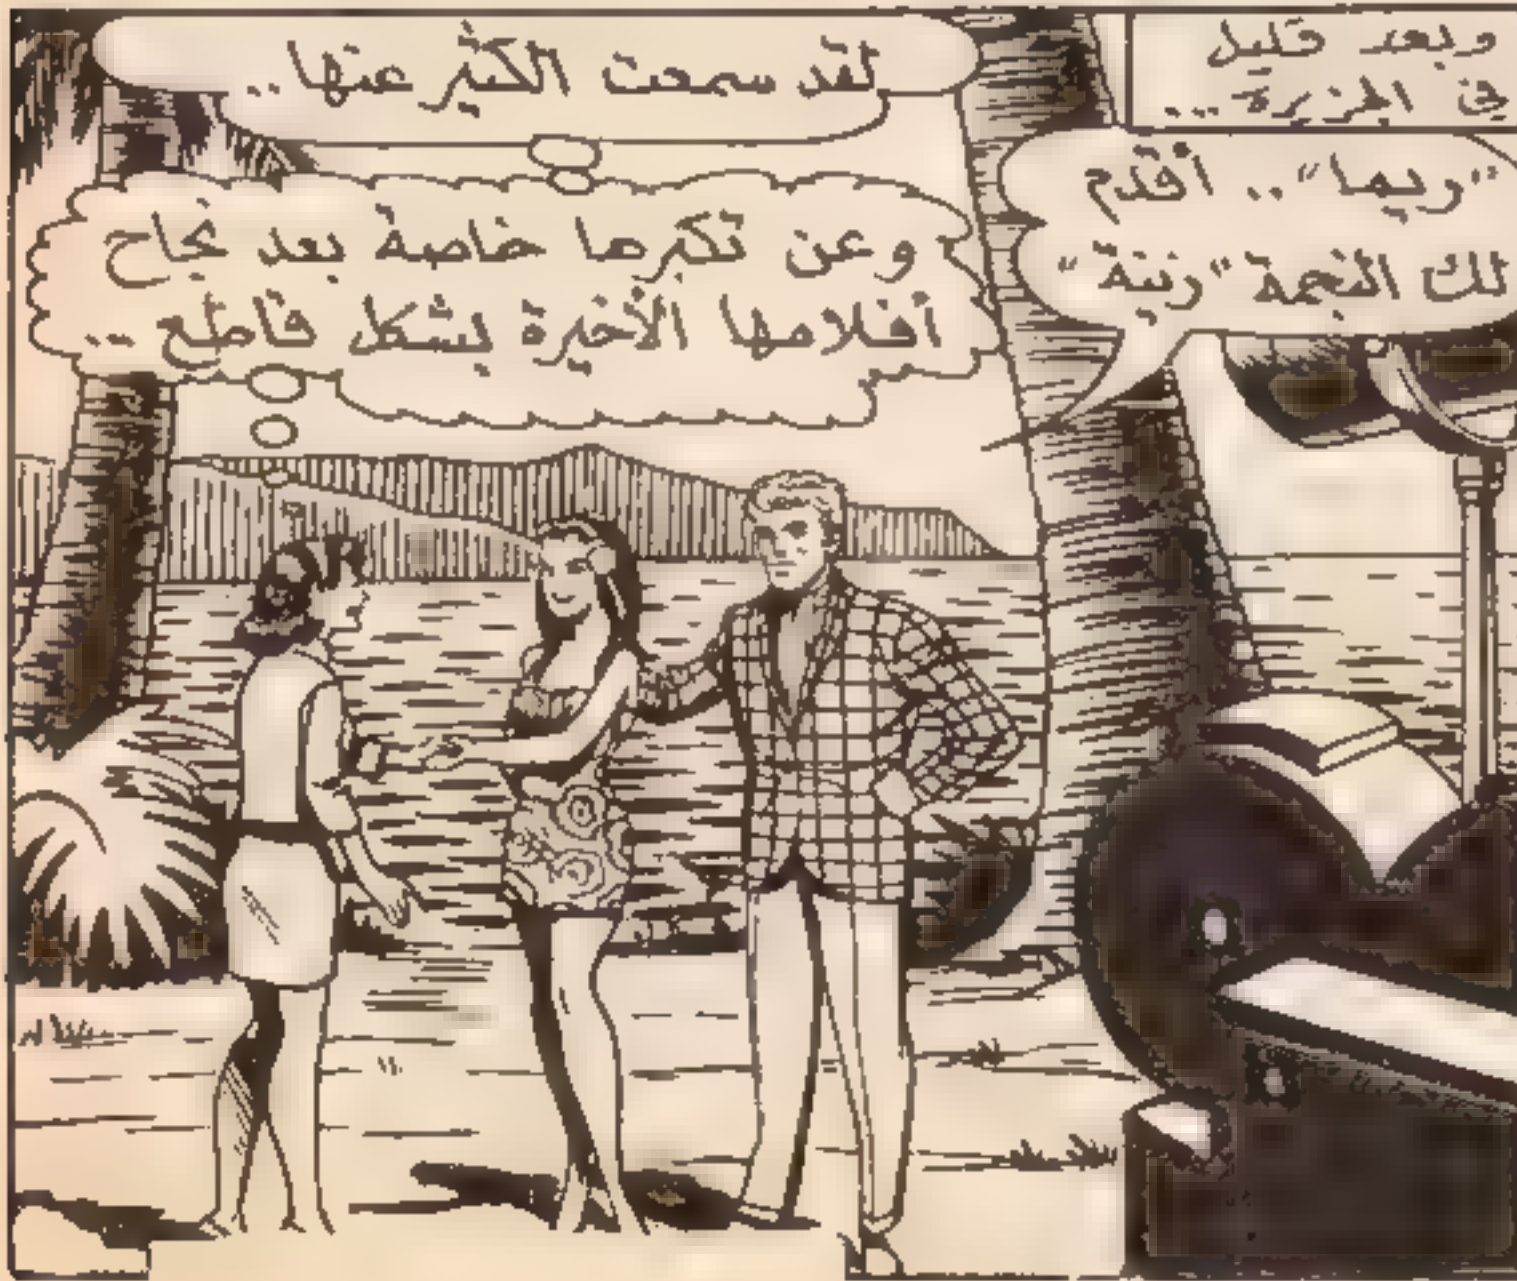 وبعد قليل
في الجزيرة...
"ريما".. أقدم
لك النجمة "زينة"
لقد سمعت الكثير عنها..
وعن تكبرها خاصة بعد نجاح
أفلامها الأخيرة بشكل قاطع..